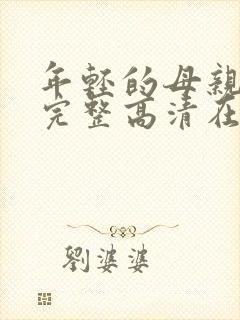 年轻的母親
完整高清在
劉婆婆